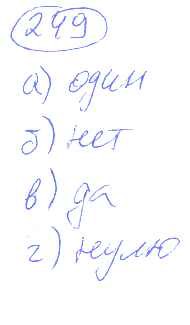 249
а) один
б) нет
в) да
г) нулю